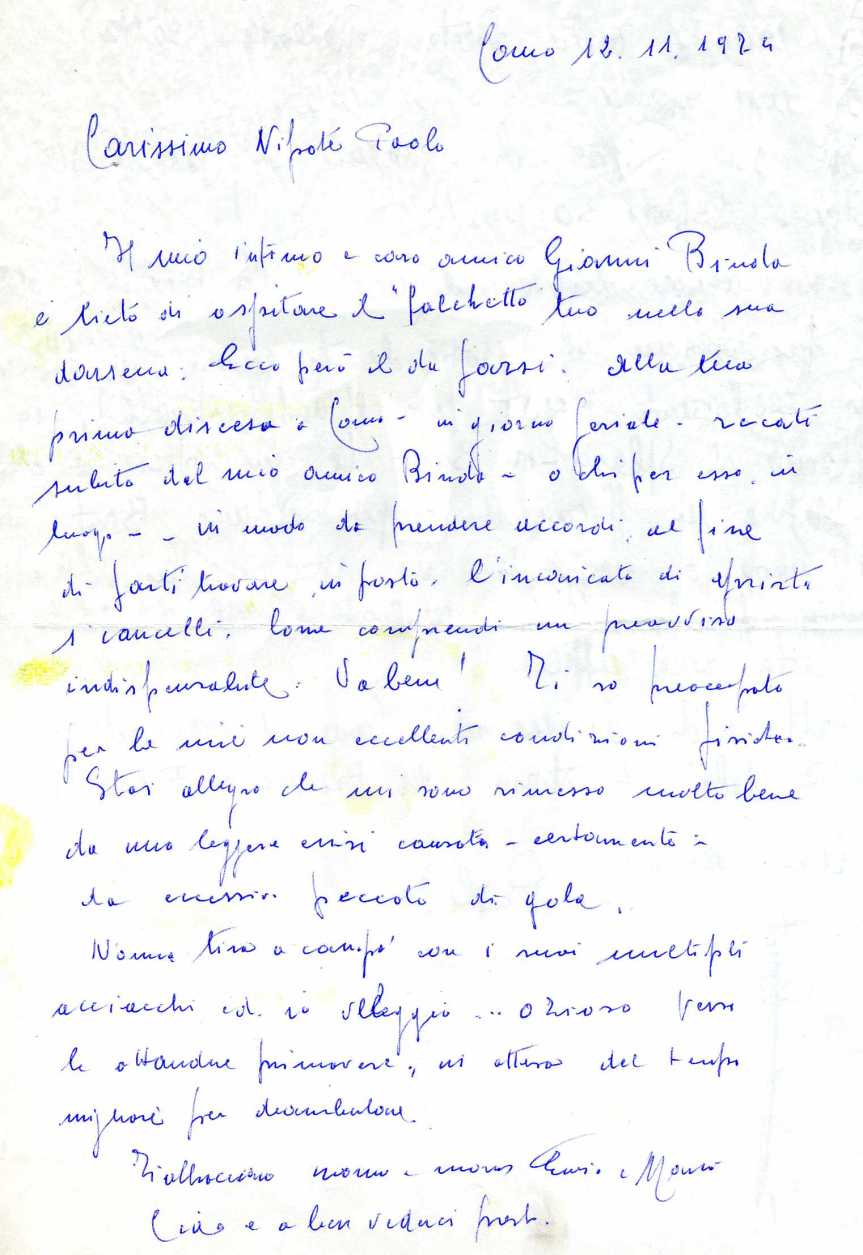 Como 12. 11. 1974
Carissimo Nipote Paolo
Il mio intimo e caro amico Gianni Binda
è lieto di ospitare il "falchetto" tuo nella sua
darsena. Ecco però il da farsi. Alla tua
prima discesa a Como - in giorno feriale - recati
subito dal mio amico Binda - o chi per esso, in
luogo - - in modo da prendere accordi, al fine
di farti trovare in posto, l'incaricato di aprirti
i cancelli. Come comprendi un preavviso
indispensabile. Va bene! Ti so preoccupato
per le mie non eccellenti condizioni fisiche.
Stai allegro che mi sono rimesso molto bene
da una leggera crisi causata - certamente -
da eccessivi peccati di gola.
Nonna tira a campà con i suoi multipli
acciacchi ed io veleggio ... ozioso verso
le ottandue primavere, in attesa del tempo
migliore per deambulare.
Ti abbracciamo nonno e nonna e
Ciao e a ben vederci presto.